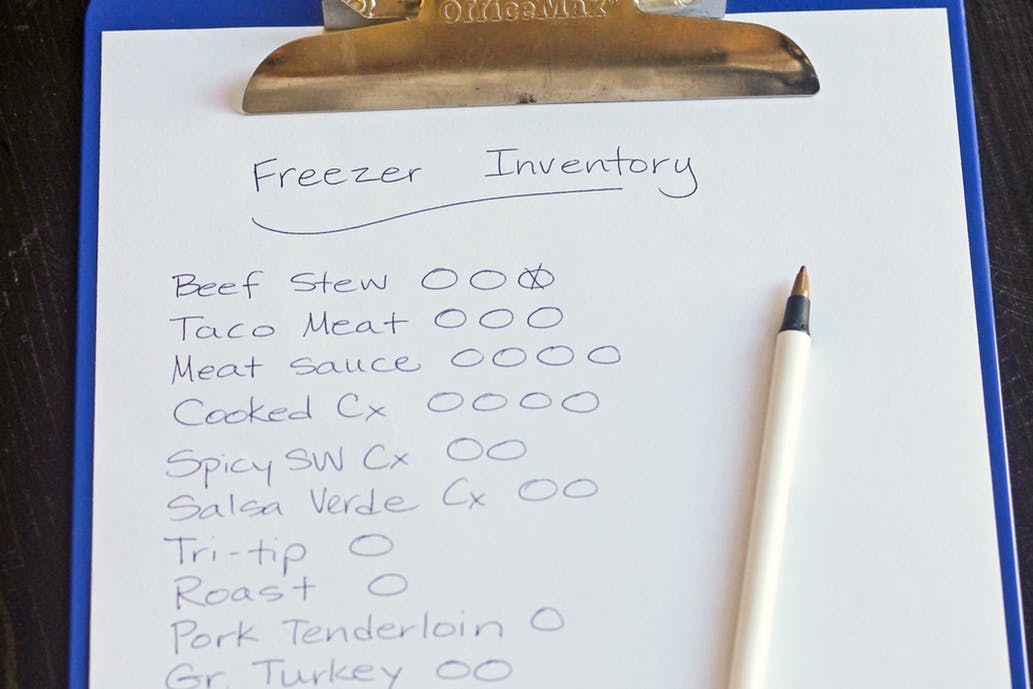 OfficeMax
Freezer Inventory
Beef Stew
Taco Meat
Meat sauce
Cooked Cx
Spicy SW Cx
Salsa Verde Cx
Tri-tip
Roast
Pork Tenderloin
Gr. Turkey